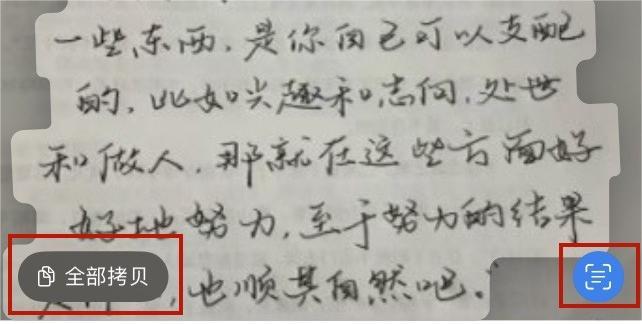 一些东西,是你自己可以支配
的,比如兴趣和志向,处世
和做人,那就在这些方面好
好地努力,至于努力的结果
,也顺其自然吧。
全部拷贝